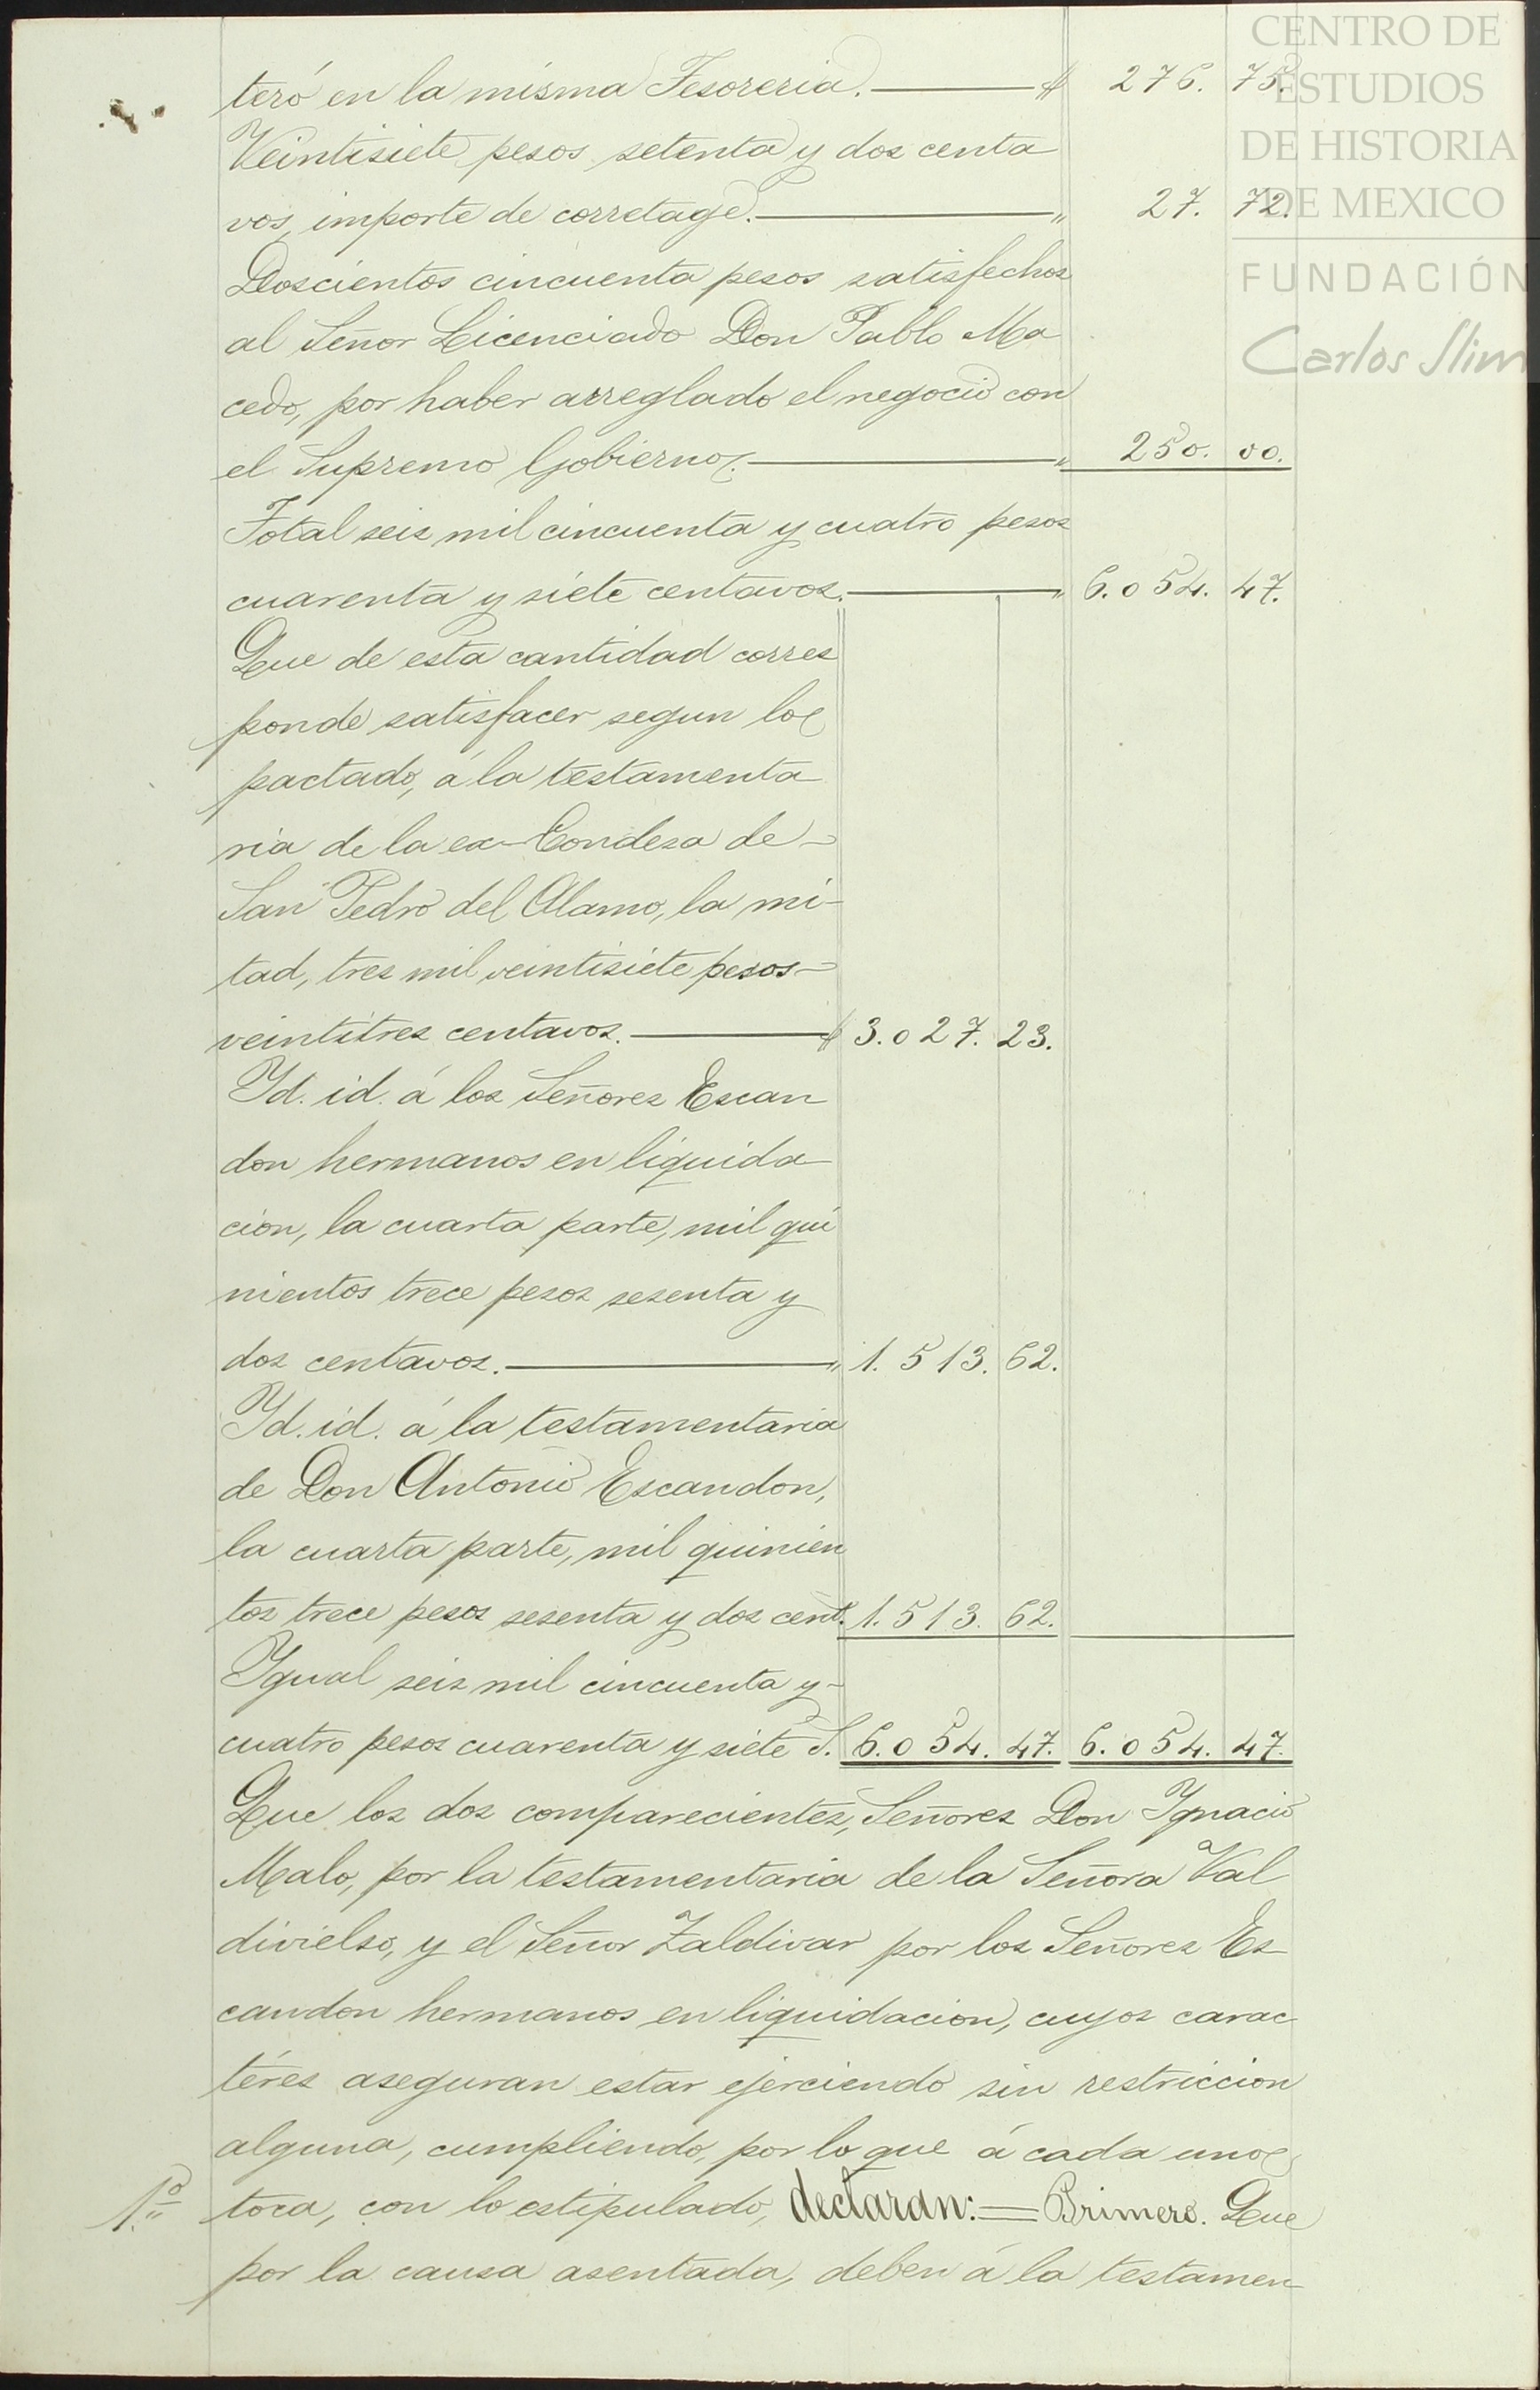 teró en la misma Tesoreria. $ 276. 75.
Veintisiete pesos setenta y dos centa
vos, importe de corretage. " 27. 72.
Doscientos cincuenta pesos satisfechos
al Señor Licenciado Don Pablo Ma
cedo, por haber arreglado el negocio con
el Supremo Gobierno. " 250. 00.
Total seis mil cincuenta y cuatro pesos
cuarenta y siete centavos. " 6.054. 47.
Que de esta cantidad corres
ponde satisfacer segun lo
pactado, á la testamenta
ria de la ex-Condesa de
San Pedro del Alamo, la mi-
tad, tres mil veintisiete pesos
veintitres centavos. $ 3.027. 23.
Yd. id. á los Señores Escan
don hermanos en liquida
cion, la cuarta parte, mil qui
nientos trece pesos sesenta y
dos centavos. " 1.513. 62.
Yd. id. á la testamentaria
de Don Antonio Escandon,
la cuarta parte, mil quinien
tos trece pesos sesenta y dos cent. 1.513. 62.
Ygual seis mil cincuenta y-
cuatro pesos cuarenta y siete S. 6.054. 47. 6.054. 47.
Que los dos comparecientes, Señores Don Ygnacio
Malo, por la testamentaria de la Señora Val
divielso, y el Señor Zaldivar por los Señores Es
candon hermanos en liquidacion, cuyos carac
téres aseguran estar ejerciendo sin restriccion
alguna, cumpliendo, por lo que á cada uno
1.º toca, con lo estipulado, declaran:= Primero. Que
por la causa asentada, deben á la testamen
CENTRO DE
ESTUDIOS
DE HISTORIA
DE MEXICO
FUNDACIÓN
Carlos Slim